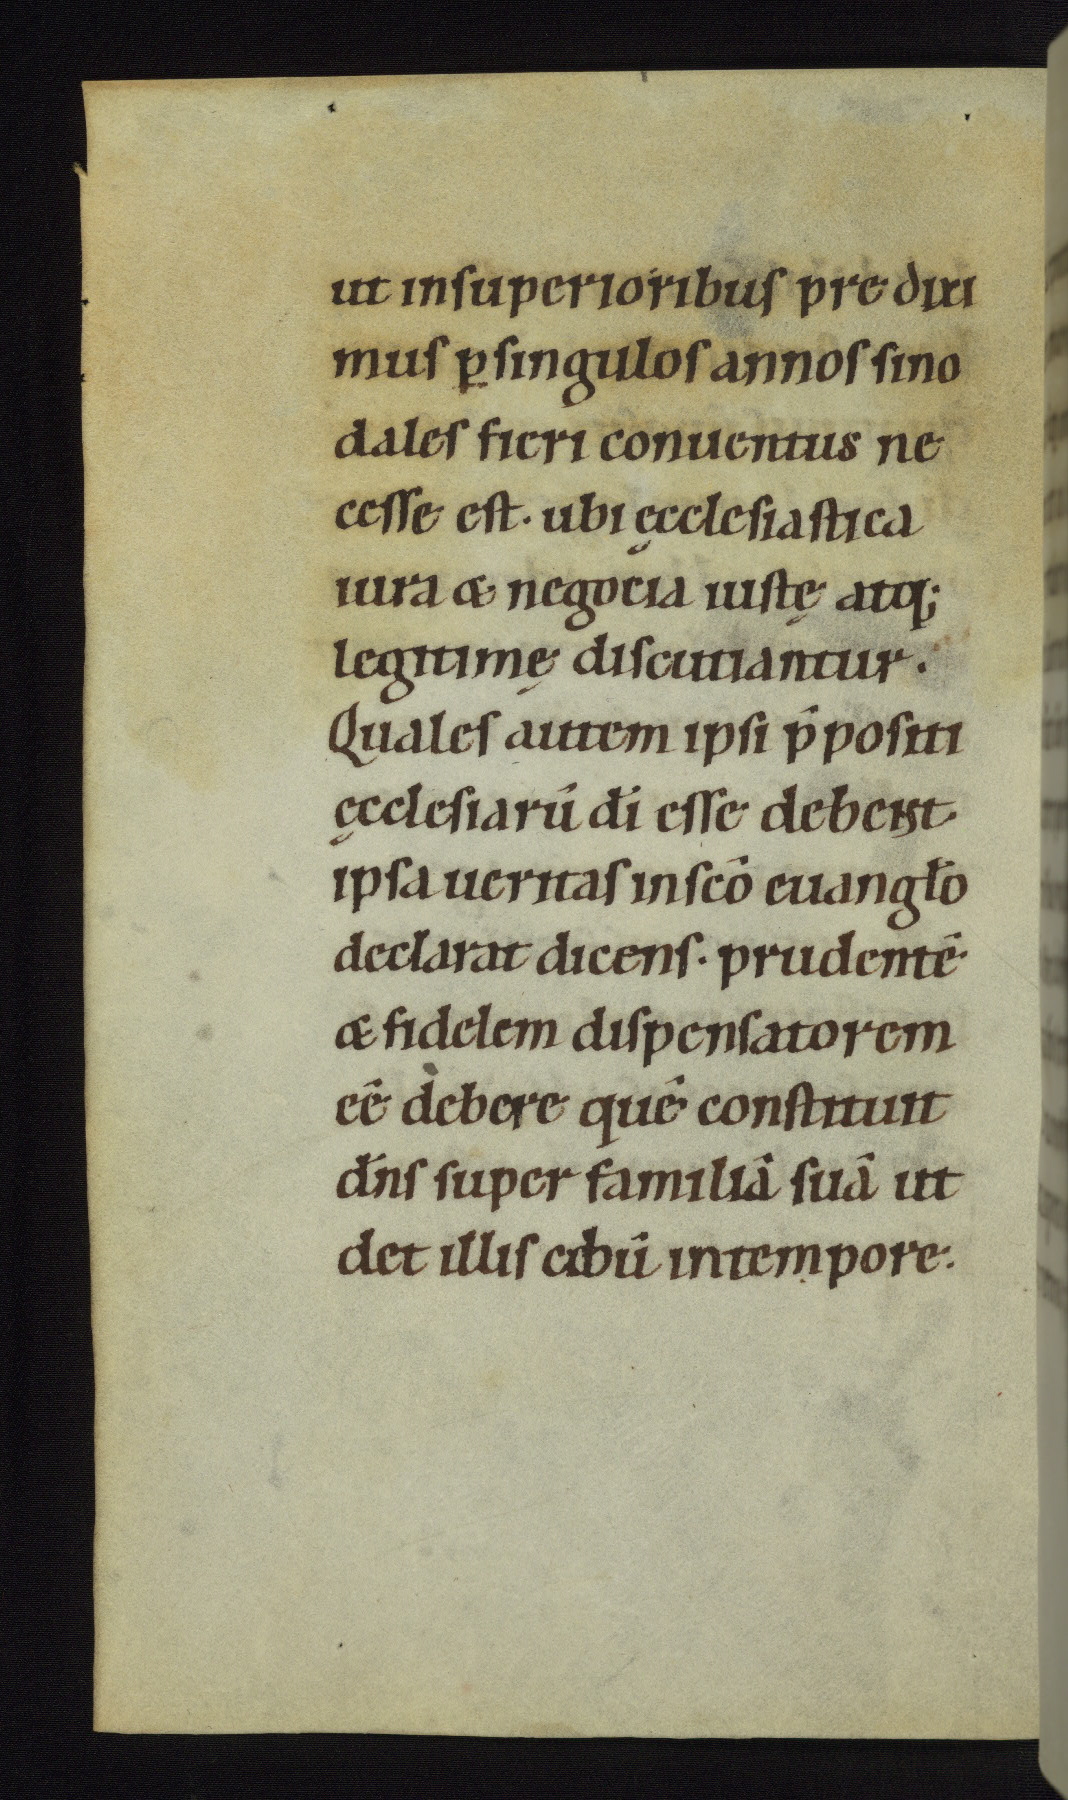 ut inſuperioribuſ pre dixi
muſ ꝑſinguloſ annoſ ſino
daleſ fieri conuentus ne
ceſſe eſt. ubi ęccleſiaſtica
iura & negocia iuſtę atq;
legitimę diſcutiantur.
Qualeſ autem ipſi p̄poſiti
ęccleſiarū dī eſſe debent
ipſa ueritaſ inſcō euanglō
declarat dicenſ. prudentē
& fidelem diſpenſatorem
eē debere quē conſtituit
dn̄ſ ſuper familiā ſuā ut
det illiſ cibū intempore.